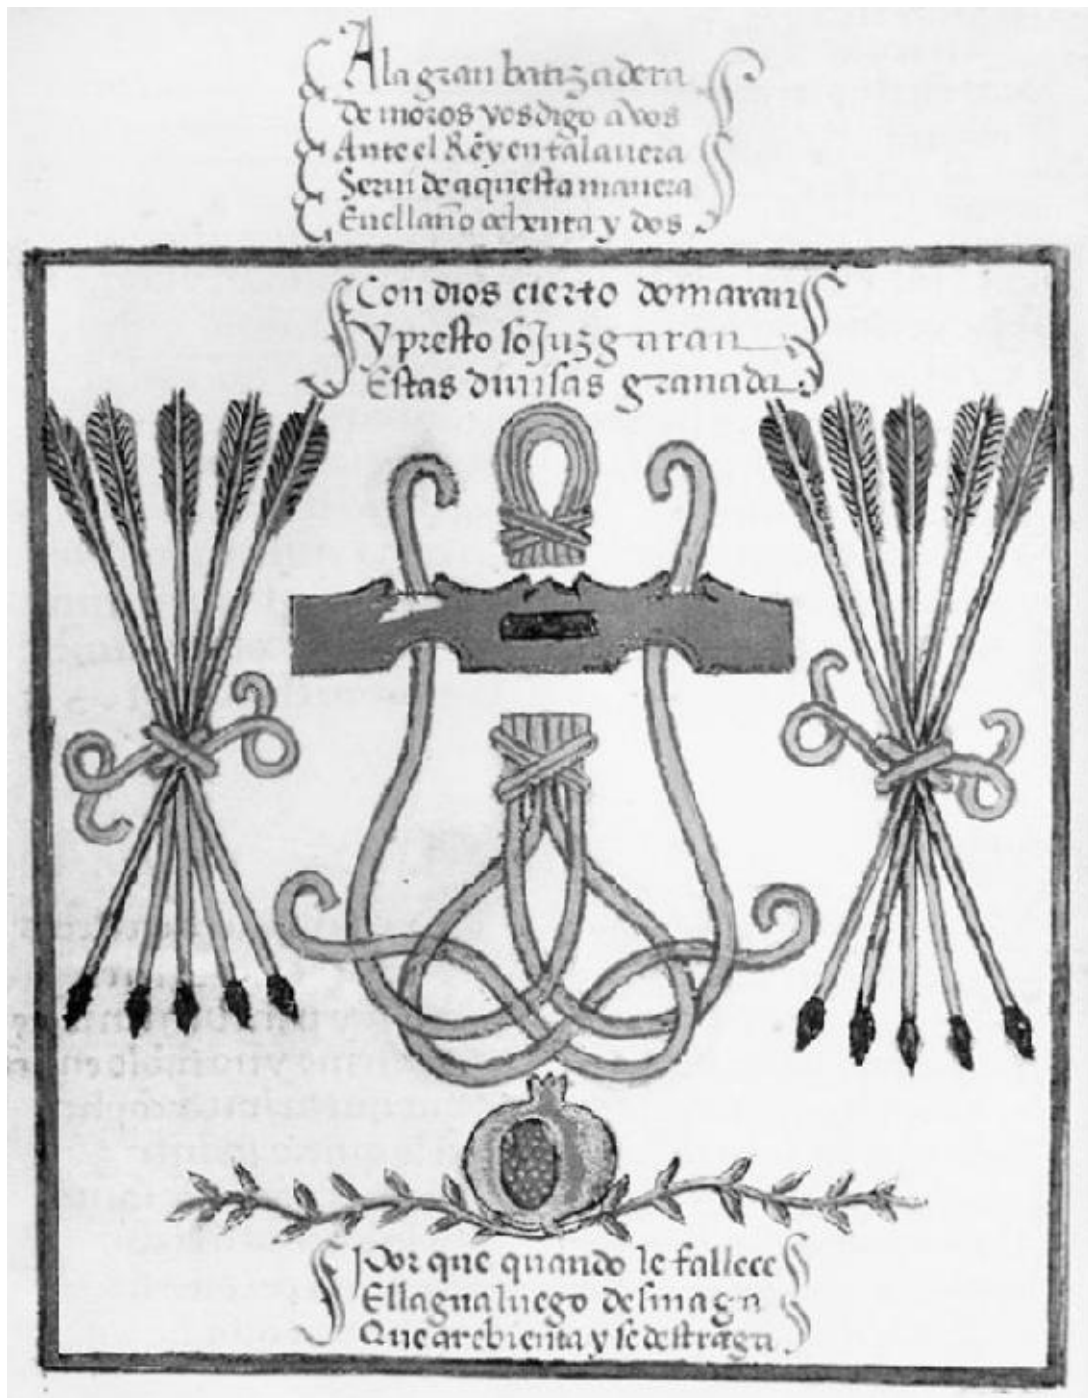 Ala gran batizadera
De moros vos digo a vos
Ante el Rey en talauera
Serui de aquesta manera
Enell año ochenta y dos
Con dios cierto domaran
Y presto soJuzgaran
Estas diuisas granada
Por que quando le fallece
Ell agua luego desmaga
Que arebienta y se destraga